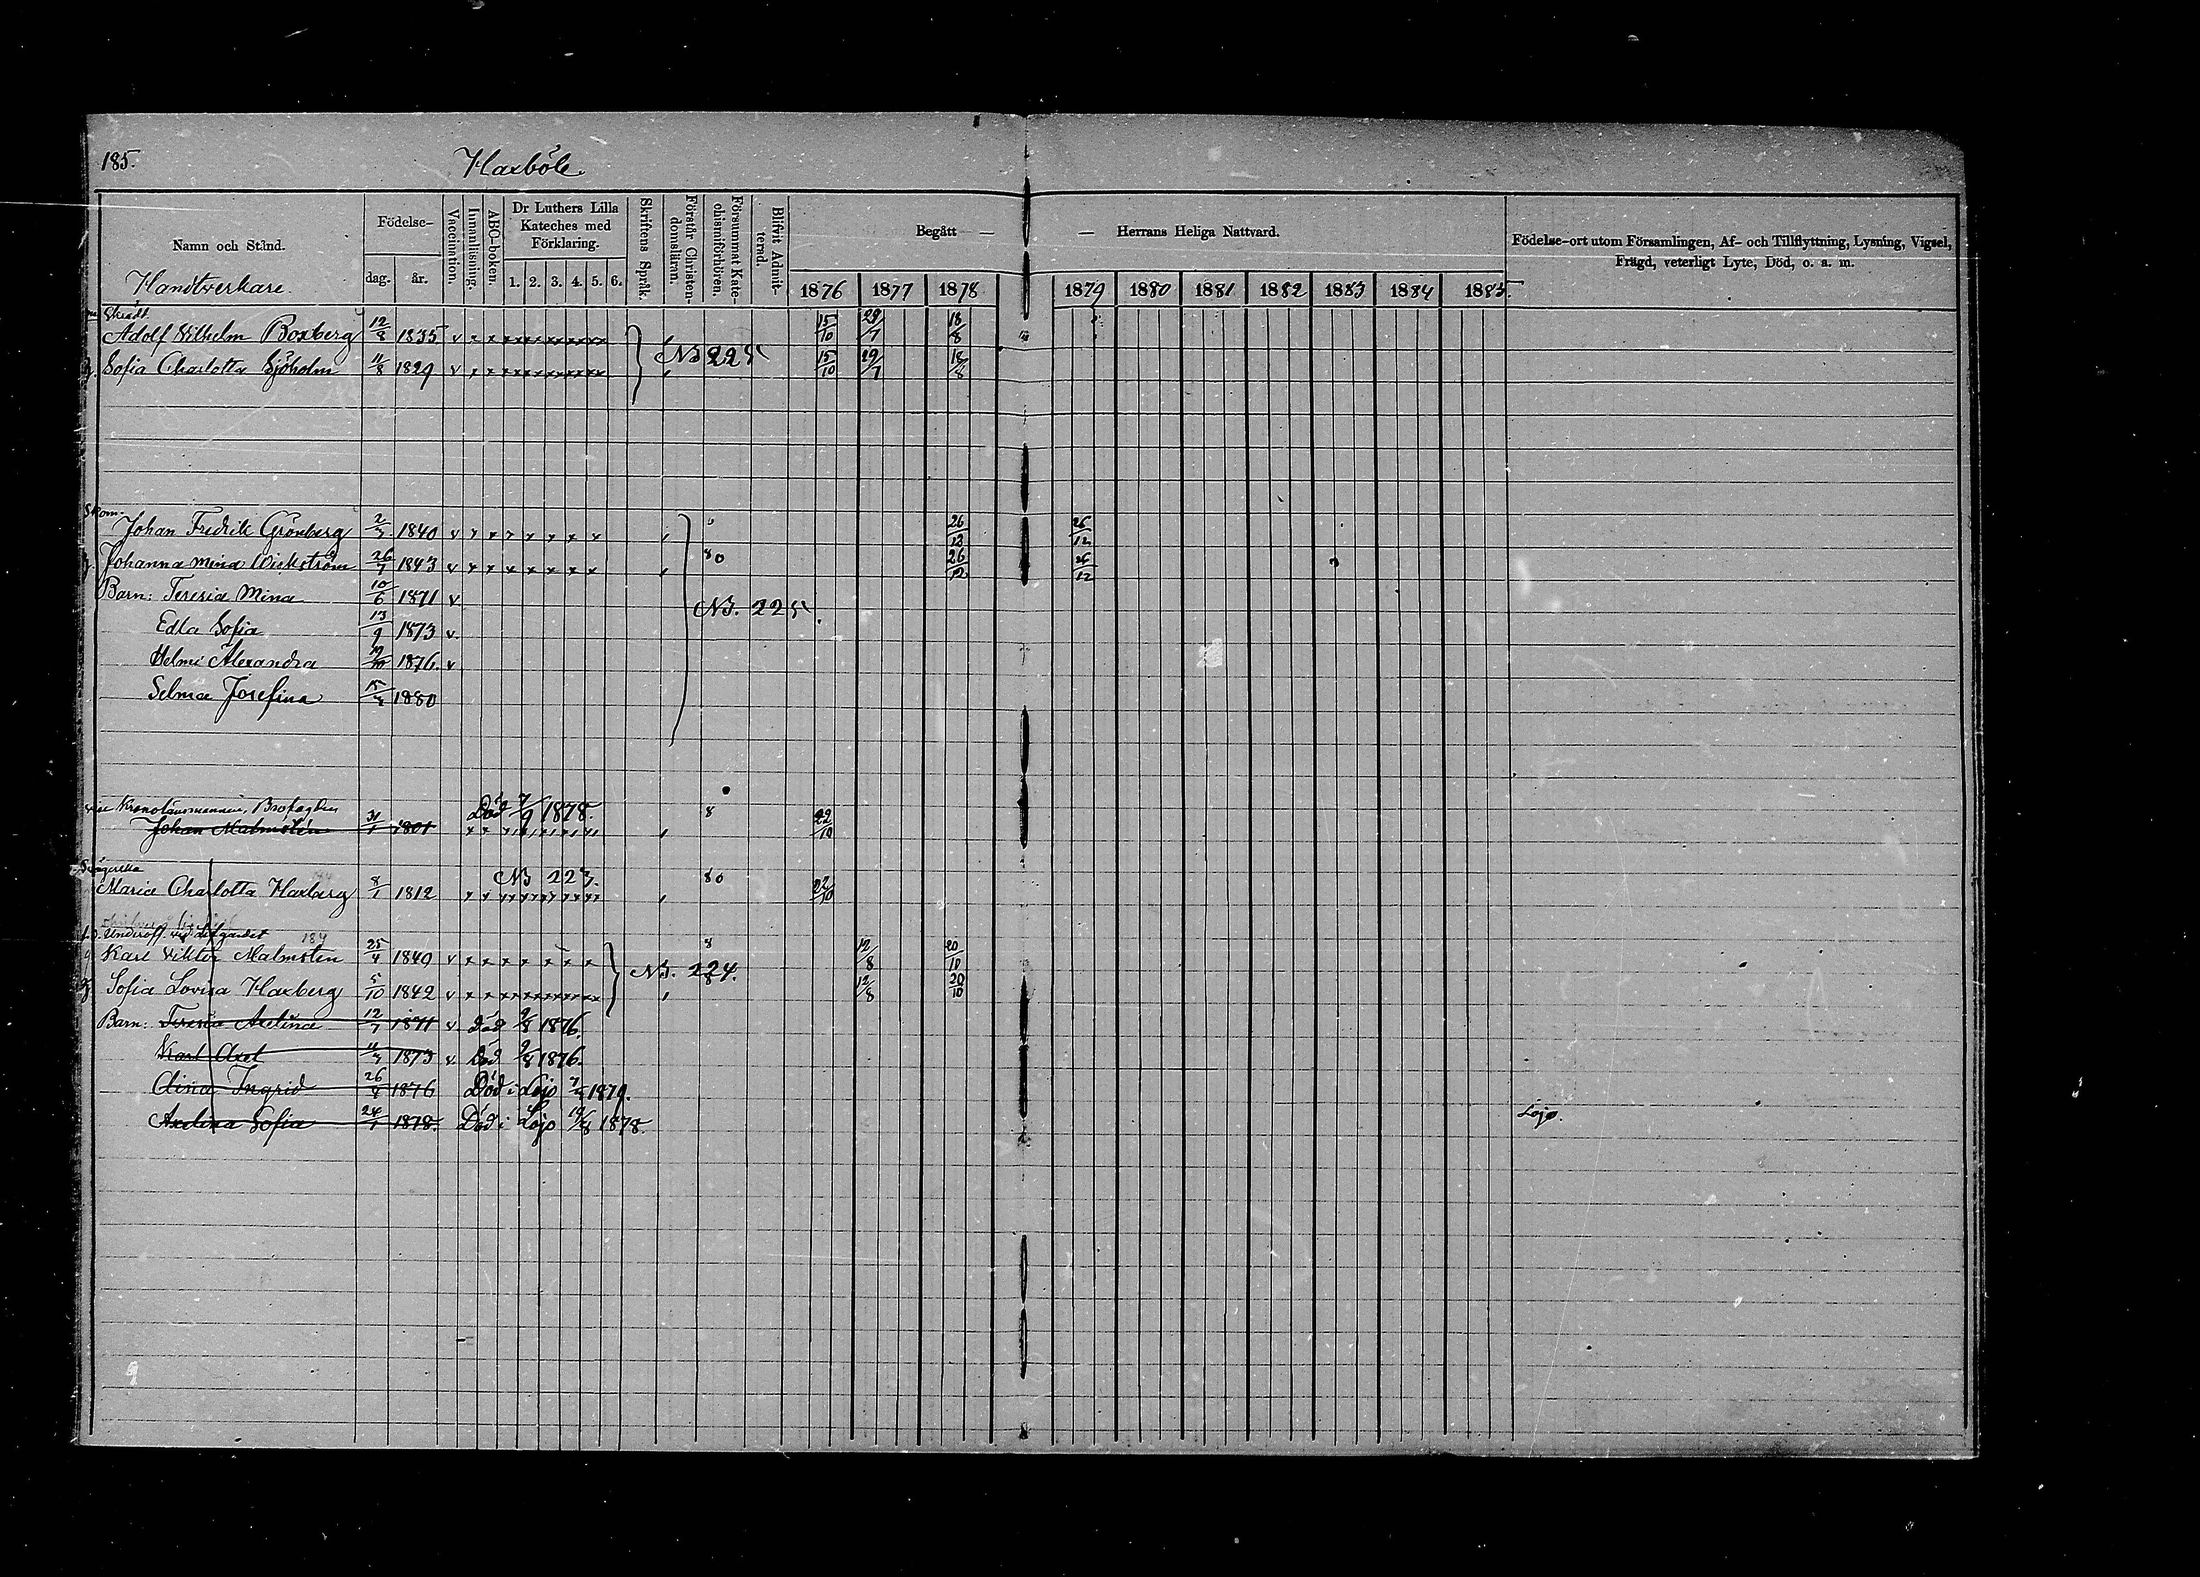 185. Haxböle.
Namn och Stånd. Födelse- dag. år. Vaccination. Innanläsning. ABC-boken. Dr Luthers Lilla Kateches med Förklaring. 1. 2. 3. 4. 5. 6. Skriftens Språk. Förstår Christen-domsläran. Försummat Kate-chismiförhören. Blifvit Admit-terad. Begått — — Herrans Heliga Nattvard. Födelse-ort utom Församlingen, Af- och Tillflyttning, Lysning, Vigsel,
Frägd, veterligt Lyte, Död, o. a. m.
Handtverkare. 1876 1877 1878 1879 1880 1881 1882 1883 1884 1885
Adolf Vilhelm Boxberg 12/8 1835 v 15/10 29/7 18/8
N3 225
Sofia Charlotta Sjöholm 11/8 1829 v 15/10 29/7 18/8
Skom.
Johan Fredrik Grönberg 2/7 1840 v 26/12 26/12
h. Johanna Mina Wickström 26/7 1843 v 80 26/12 26/12
Barn: Teresia Mina 10/6 1871 v
N3. 225.
Edla Sofia 13/9 1873 v.
Helmi Alexandra 1876. v
Selma Josefina 1880
Johan Malmstén 31/1 1801 Död 7/9 1878. 8 22/10
Svägerska
Maria Charlotta Haxberg 8/1 1812 N3 223. 80 22/10
184
Karl Viktor Malmsten 25/4 1840 v 8 12/8 20/10
N3. 224.
Sofia Lovisa Haxberg 5/10 1842 v 8 12/8 20/10
Barn: Teresia Axelina 12/7 1871 v död 9/8 1876.
Karl Axel 1873 v. Död 9/8 1876.
Elina Ingrid 26/8 1876 Död i Lojo 1879.
Axelina Sofia 24/1 1878. Död i Lojo 19/8 1878. Lojo.